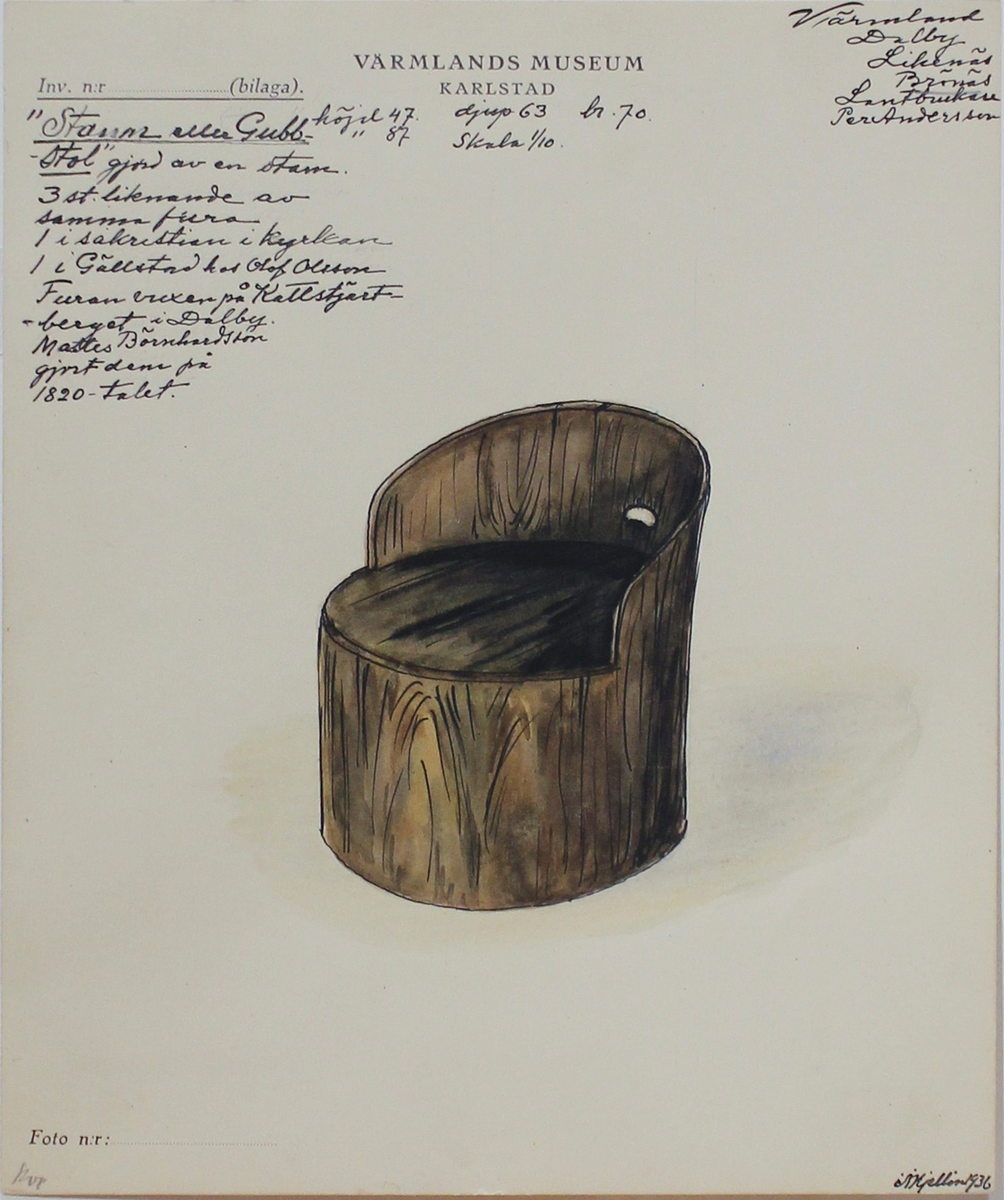 Värmland
Dalby
Likenäs
Brönäs
Lantbrukare
Per Andersson
VÄRMLANDS MUSEUM
KARLSTAD
Inv. n:r (bilaga).
"Stamm eller Gubb- höjd 47. djup 63 br. 70.
" 87 Skala 1/10.
-Stol" gjord av en stam.
3 st. liknande av
samma fura
1 i sakristian i kyrkan
1 i Gällstad hos Olof Olsson
Furan vuxen på Kattstjärt-
-berget i Dalby.
Mattes Börnhardsson
gjort dem på
1820-talet.
Foto n:r:
Kjellin 1936